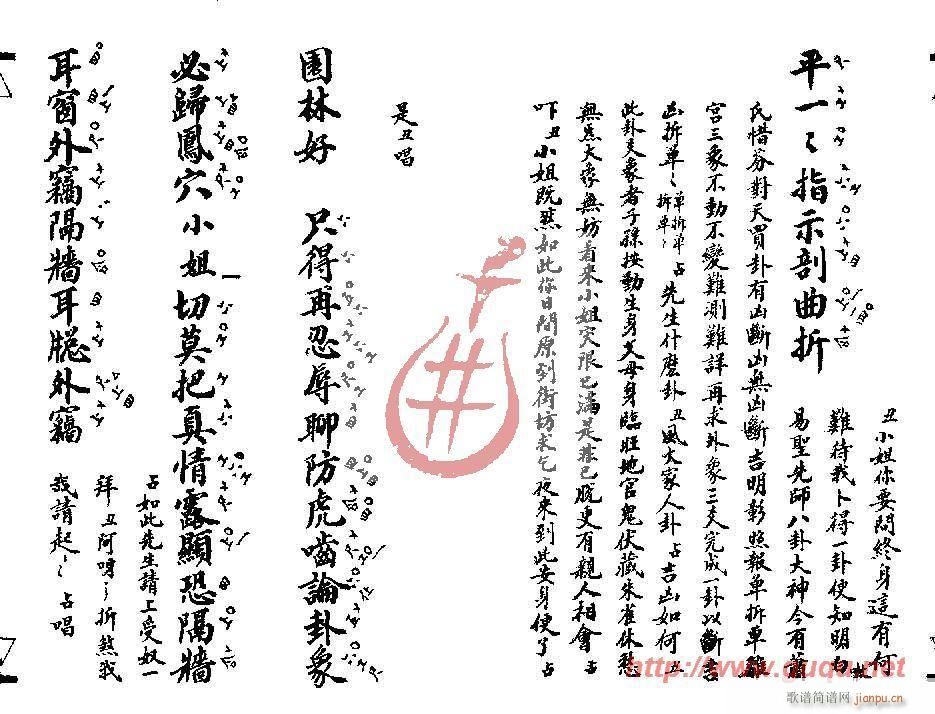 平一〻指示剖曲折
丑小姐你要問終身這有何
難待我卜得一卦便知明白
易聖先師八卦大神今有蕭
氏惜芬對天買卦有凶斷凶無凶斷吉明彰照報單拆單
宮三象不動不變難測難詳再求外象三爻完成一卦以斷吉
凶拆單〻單拆單拆單〻占先生什麽卦丑風大家人卦占吉凶如何丑
此卦爻象者子孫按動生身父母身臨旺地官鬼伏藏朱雀休愁
無忌大象無妨看來小姐灾限已滿是非已脫更有親人相會占
吓丑小姐既然如此你日間原到街坊求乞夜來到此安身便了占
是丑唱
園林好 只得再忍辱聊防虎嚙論卦象
必歸鳳穴小姐切莫把真情露顯恐隔牆
占如此先生請上受奴一
拜丑阿呀〻折煞我
耳窗外竊隔牆耳牕外竊
我請起〻占唱
http://www.ququ.net
歌谱简谱网
jianpu.cn